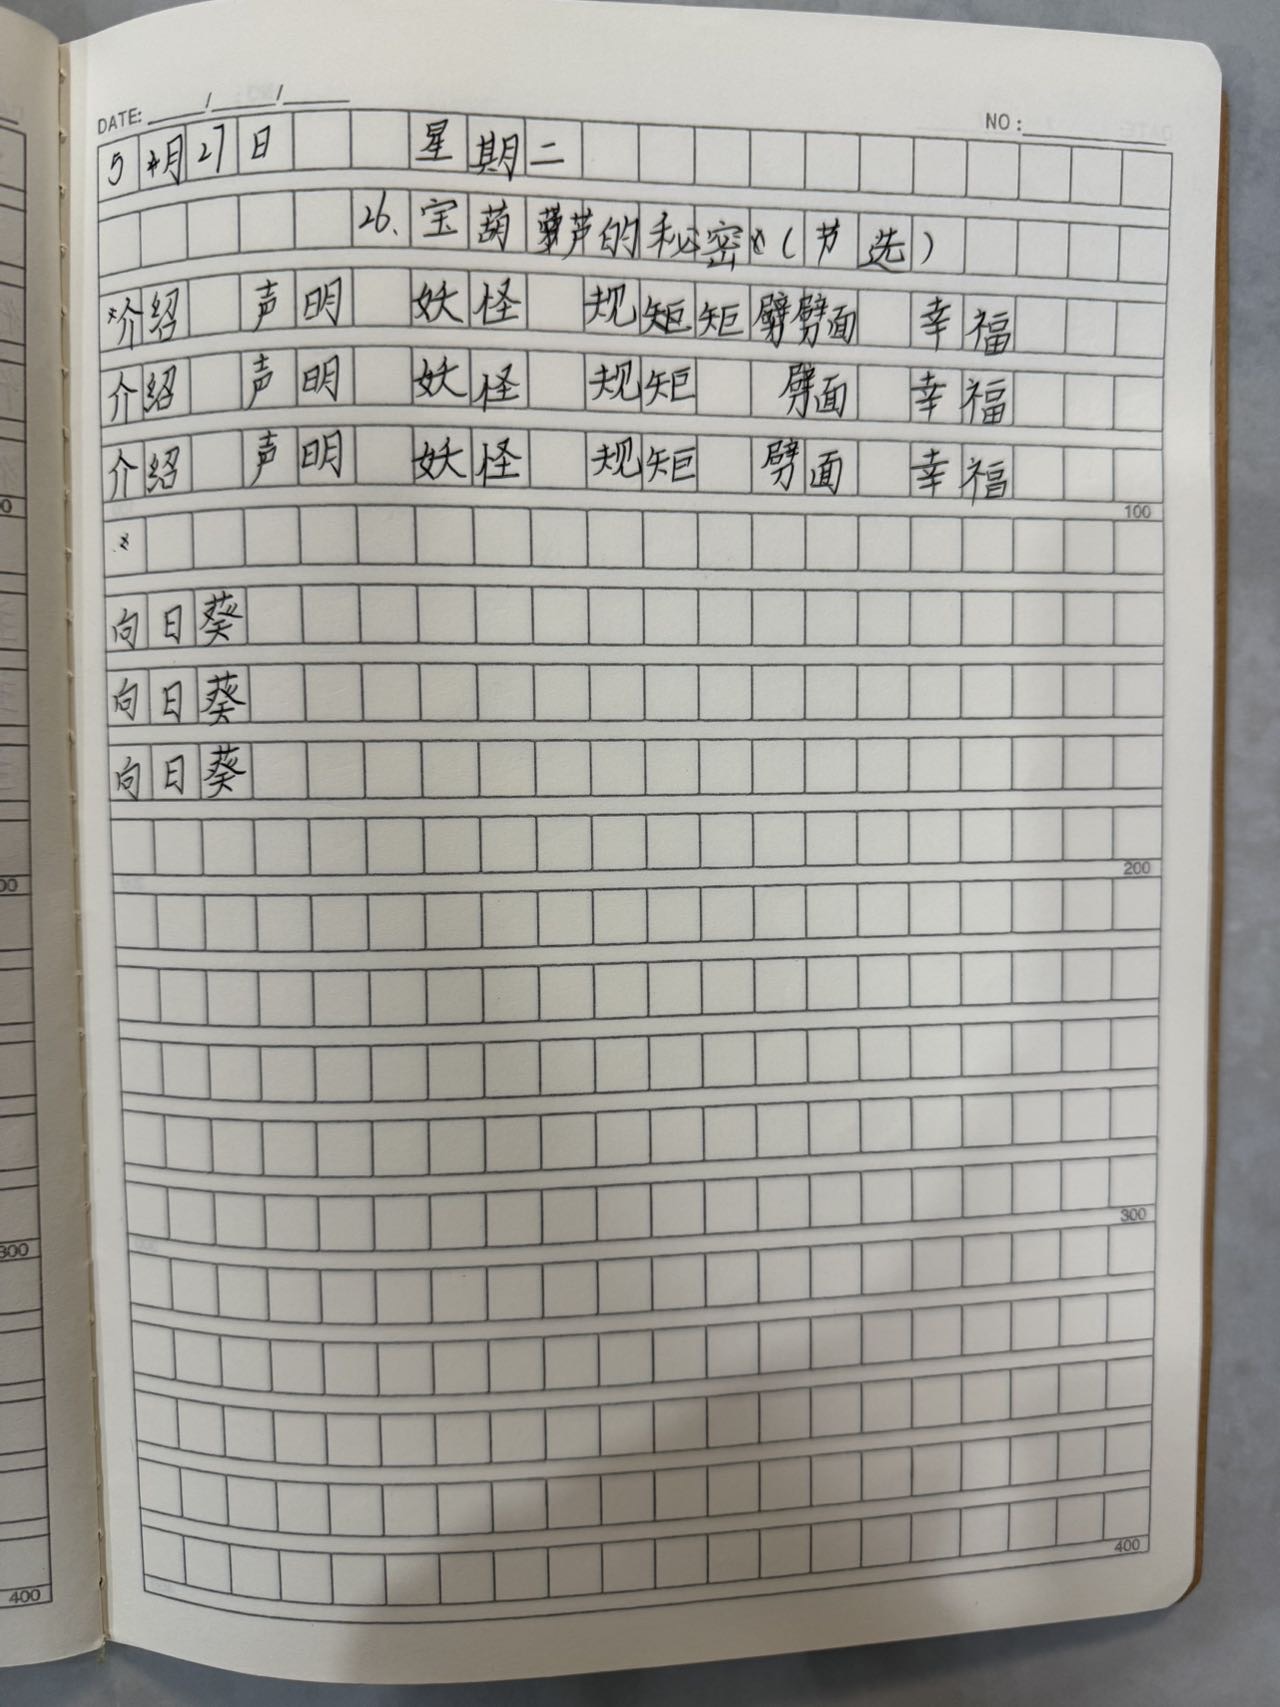 DATE: ____/____/____ NO:________
5月27日 星期二
26.宝葫芦的秘密(节选)
介绍 声明 妖怪 规矩矩劈劈面 幸福
介绍 声明 妖怪 规矩 劈面 幸福
介绍 声明 妖怪 规矩 劈面 幸福
100
向日葵
向日葵
向日葵
200
300
400
00
00
300
400